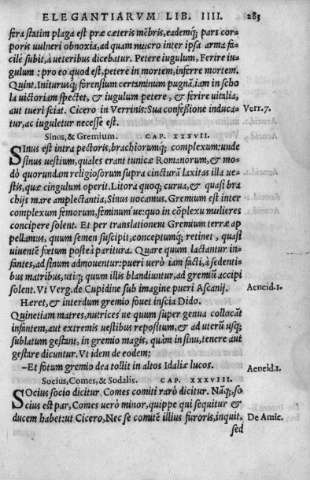 ELEGANTIARVM LIB. IIII. 285
fera statim plaga est præ cæteris mēbris, eademq́; pars cor-
poris uulneri obnoxia, ad quam mucro inter ipsa arma fa-
cilè subit, à ueteribus dicebatur. Petere iugulum, Ferire iu-
gulum: pro eo quod est, petere in mortem, inferre mortem.
Quint. Initurusq́; forensium certaminum pugnā, iam in scho
la uictoriam spectet, & iugulum petere, & ferire uitalia,
aut tueri sciat. Cicero in Verrinis: Sua confessione induca- Verr.7.
tur, ac iuguletur necesse est.
Sinus, & Gremium. CAP. XXXVII.
SInus est intra pectoris, brachiorumq́; complexum: unde
sinus uestium, quales erant tunicæ Romanorum, & mo-
dò quorundam religiosorum supra cincturā laxitas illa ue-
stis, quæ cingulum operit. Litora quoq́; curua, & quasi bra
chijs mare amplectantia, Sinus uocamus. Gremium est inter
complexum femorum, feminum ue: quo in cōplexu mulieres
concipere solent. Et per translationem Gremium terræ ap
pellamus, quum semen suscipit, conceptumq́; retinet, quasi
uiuentē fœtum postea paritura. Quare quum lactantur in-
fantes, ad sinum admouentur: pueri uerò iam facti, à sedenti-
bus matribus, utiq; quum illis blandiuntur, ad gremiū accipi
solent. Vt Verg. de Cupidine sub imagine pueri Ascanij. Aeneid.1.
Hæret, & interdum gremio fouet inscia Dido.
Quinetiam matres, nutrices ue quum super genua collocāt
infantem, aut extremis uestibus repositum, & ad uterū usq́;
sublatum gestant, in gremio magis, quàm in sinu, tenere aut
gestare dicuntur. Vt idem de eodem;
-Et fotum gremio dea tollit in altos Idaliæ lucos. Aeneid.1.
Socius, Comes, & Sodalis. CAP. XXXVIII.
SOcius socio dicitur. Comes comiti rarò dicitur. Nāq́;, so
cius est par, Comes uerò minor, quippe qui sequitur &
ducem habet: ut Cicero, Nec se comitē illius furoris, inquit, De Amic.
sed